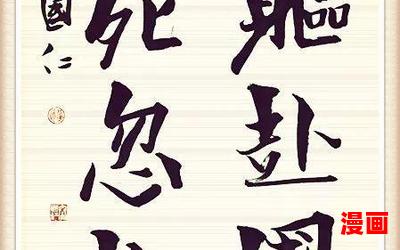 軀赴國
死忽
國仁
漫画